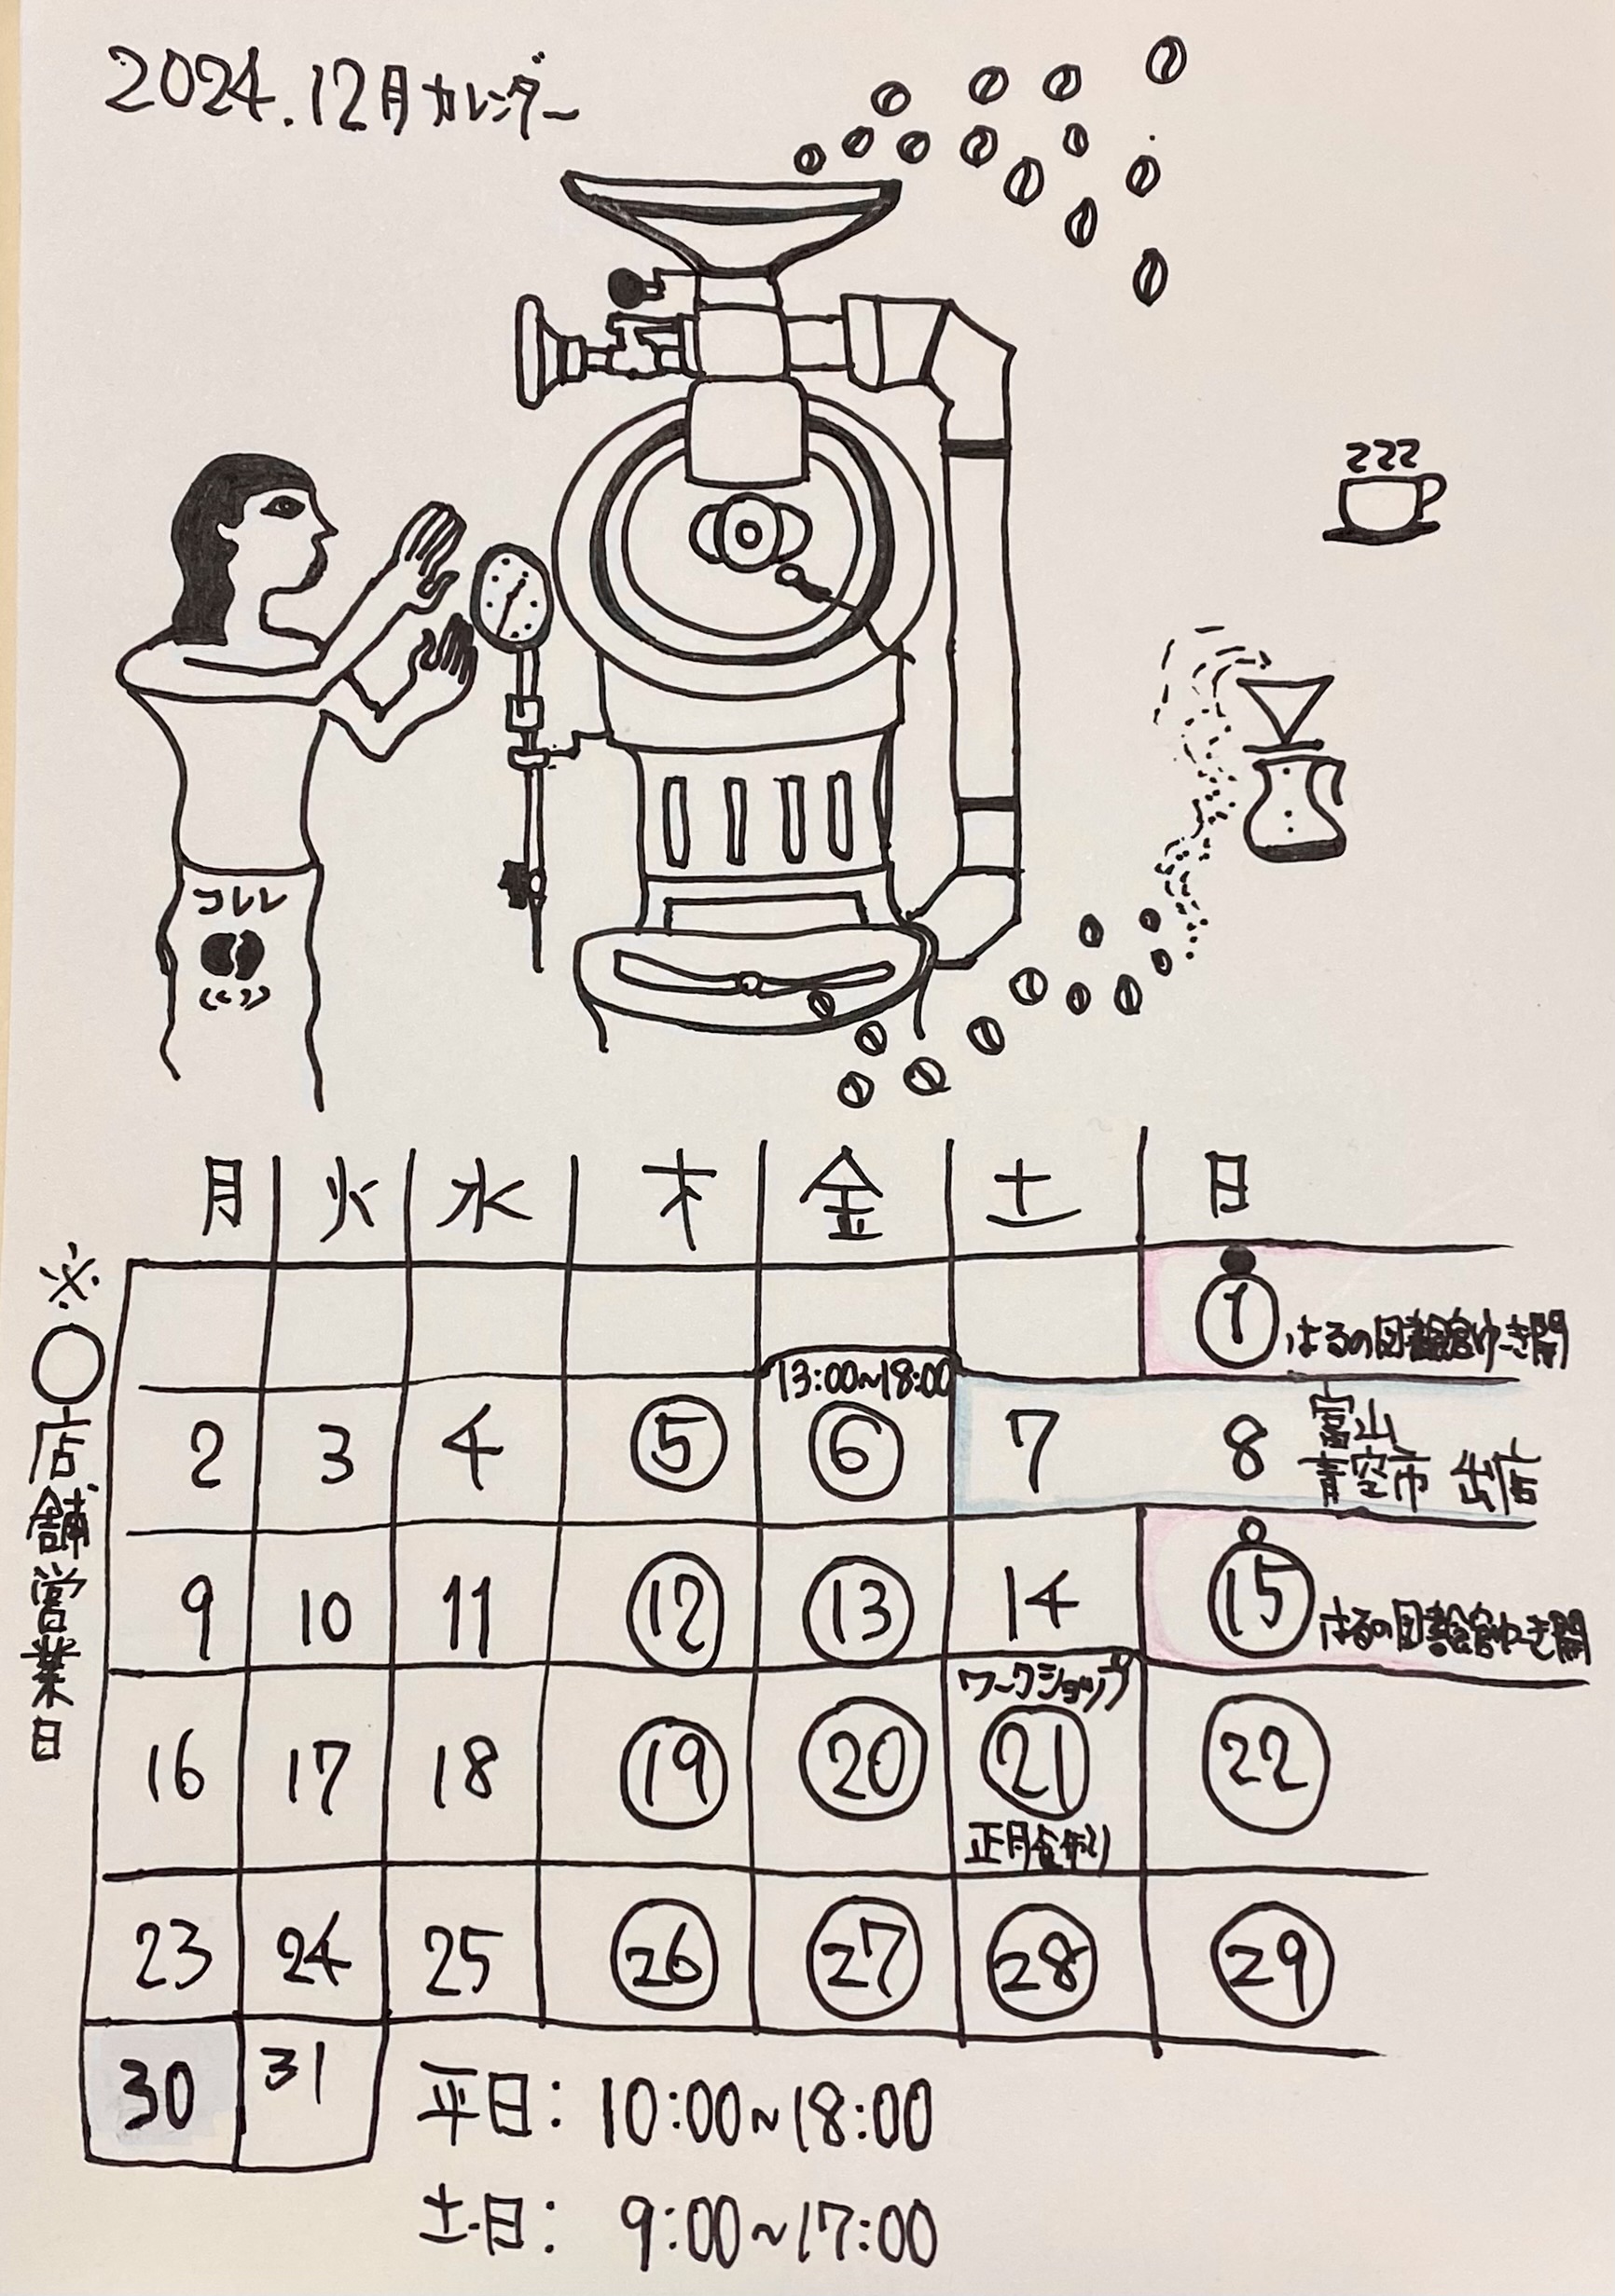 2024.12月カレンダー
コレレ
月 火 水 木 金 土 日
※〇店舗営業日
1 はるの図書館ゆき開
13:00~18:00
2 3 4 5 6 7 8 富山
青空市 出店
9 10 11 12 13 14 15 はるの図書館ゆき開
ワークショップ
16 17 18 19 20 21 22
正月 作り
23 24 25 26 27 28 29
30 31
平日: 10:00~18:00
土・日: 9:00~17:00